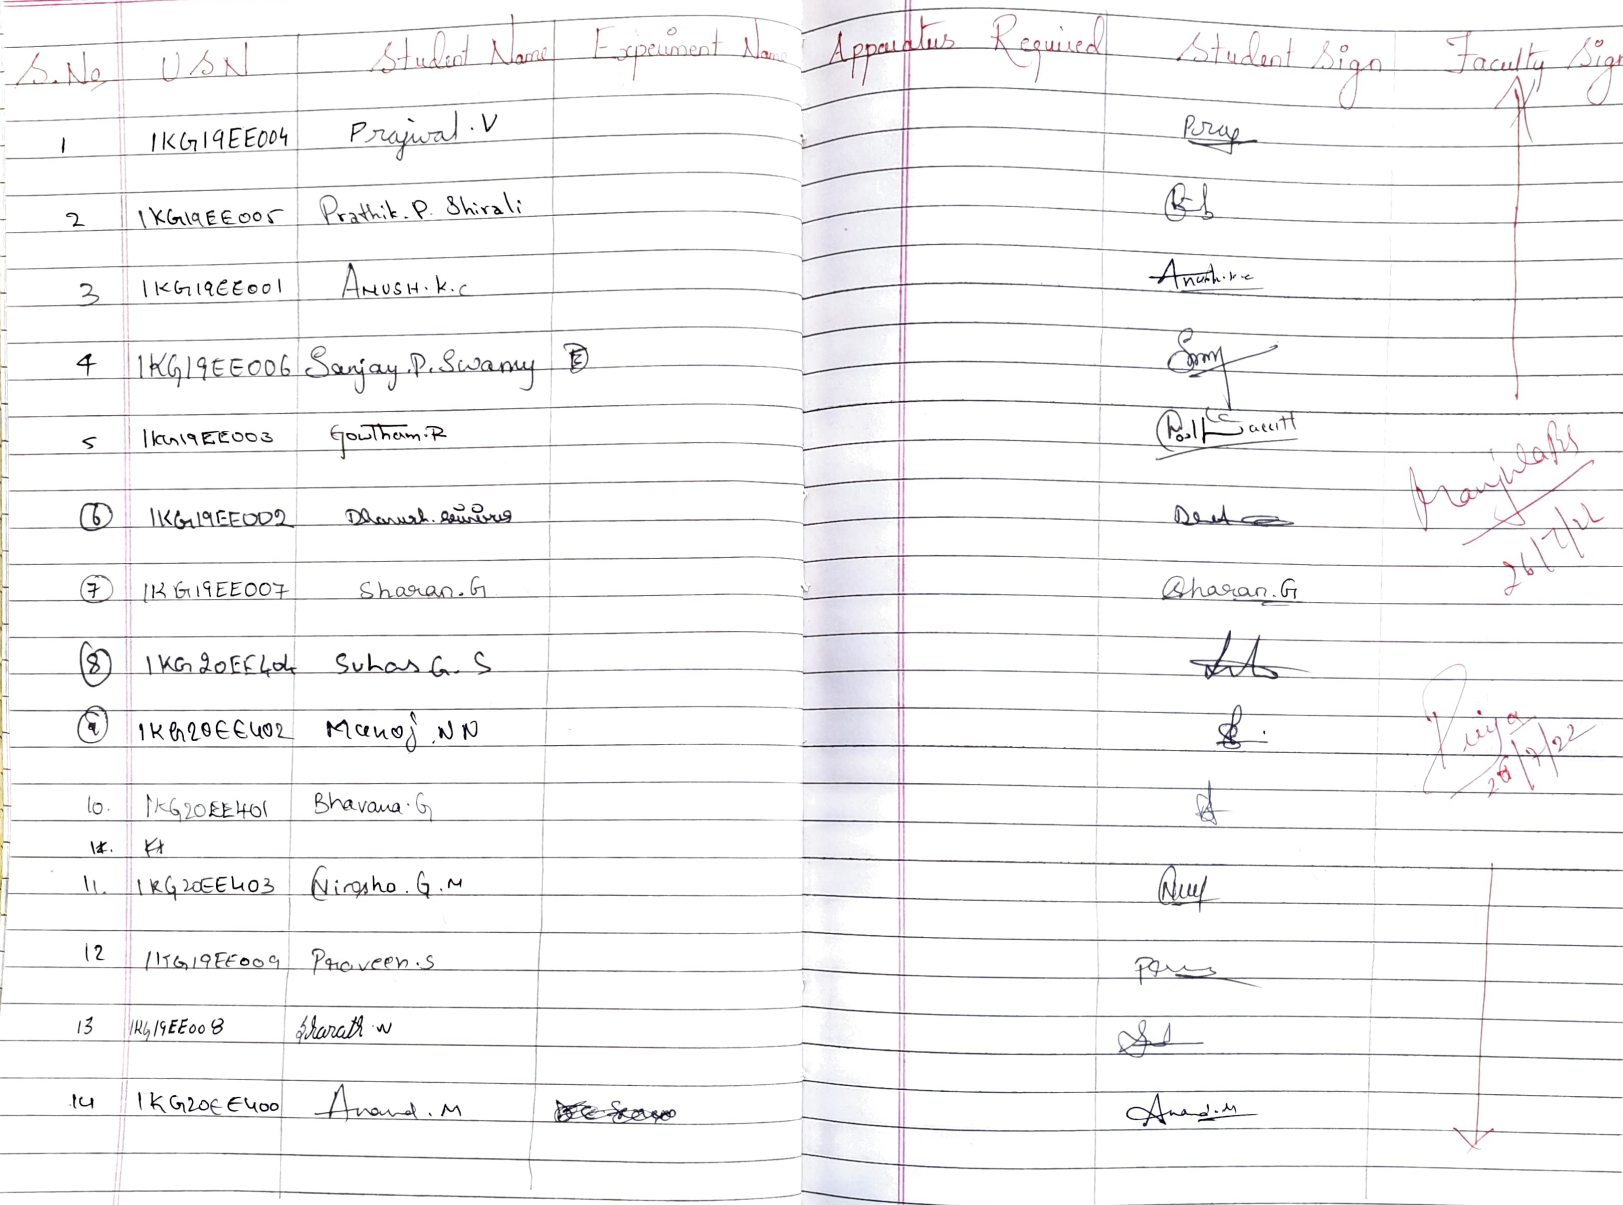 S.No USN Student Name Experiment Name Apparatus Required Student Sign Faculty Sign
1 1KG19EE004 Prajwal.V
2 1KG19EE005 Prathik.P. Shirali
3 1KG19EE001 Anush.K.C Anush.K.C
4 1KG19EE006 Sanjay.P.Swamy E
5 1KG19EE003 Gowtham.R
6 1KG19EE002 Dhanush. ManjulaBS
26/7/22
7 1KG19EE007 Sharan.G Sharan.G
8 1KG20EE404 Suhas G. S
9 1KG20EE402 Manoj.NN Priya
26/7/22
10. 1KG20EE401 Bhavana.G
11. 1KG20EE403 Nirosha.G.M
12 1KG19EE009 Praveen.S
13 1KG19EE008 Bharath.N
14 1KG20EE400 Anand.M Anand.M